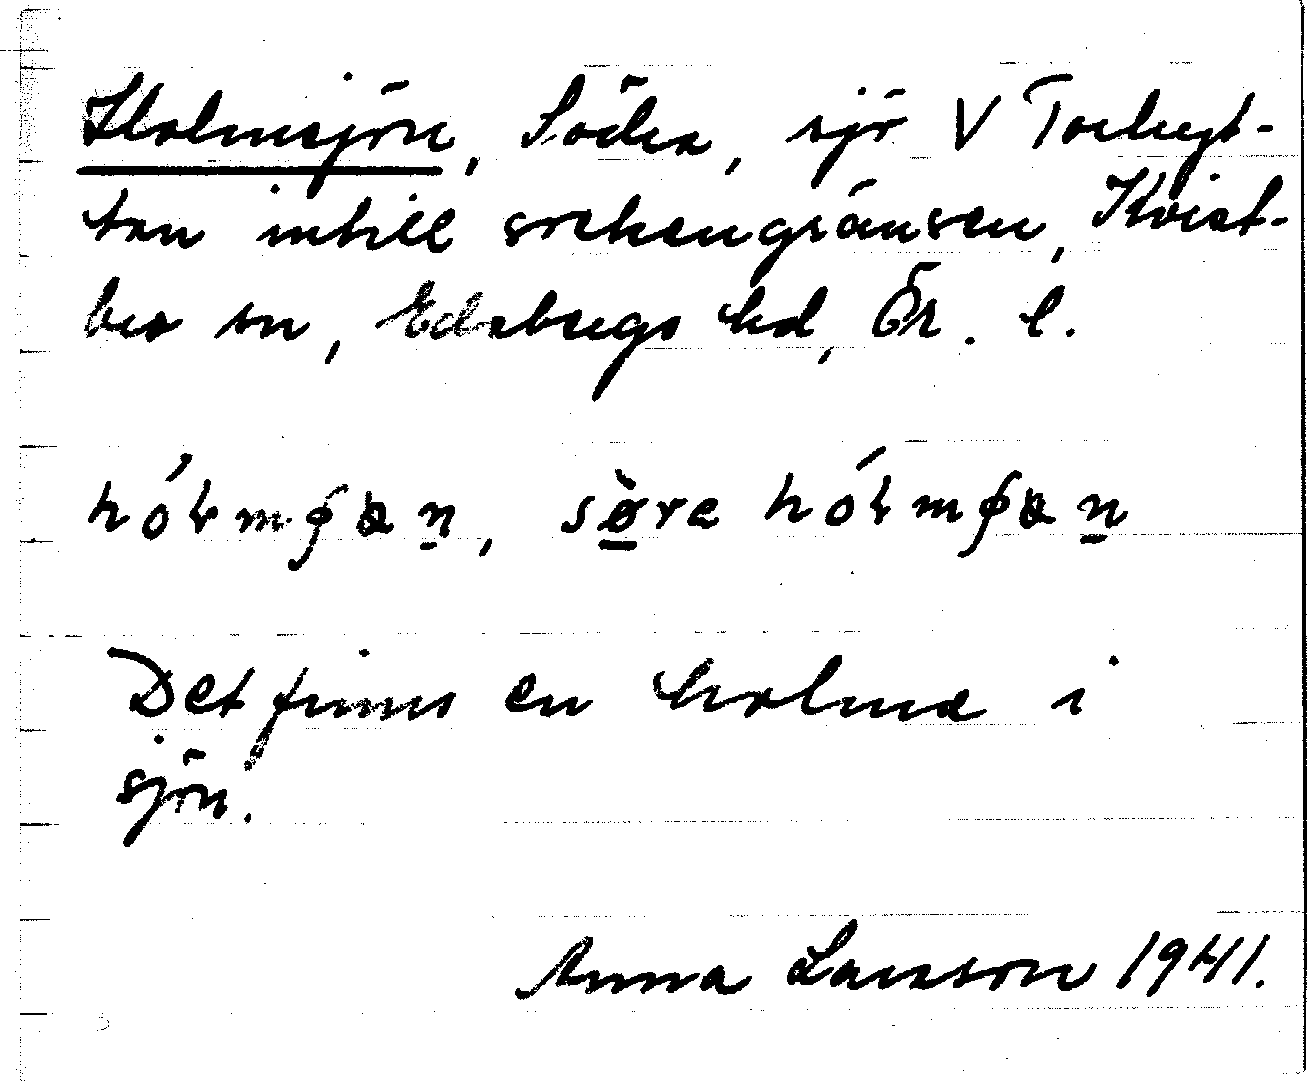 Holmsjön, Södra, sjö V Torbygt-
tan intill sockengränsen, Kvist-
bro sn, Edsbergs hd, Ör. l.
Det finns en holme i
sjön.
Anna Larsson 1941.